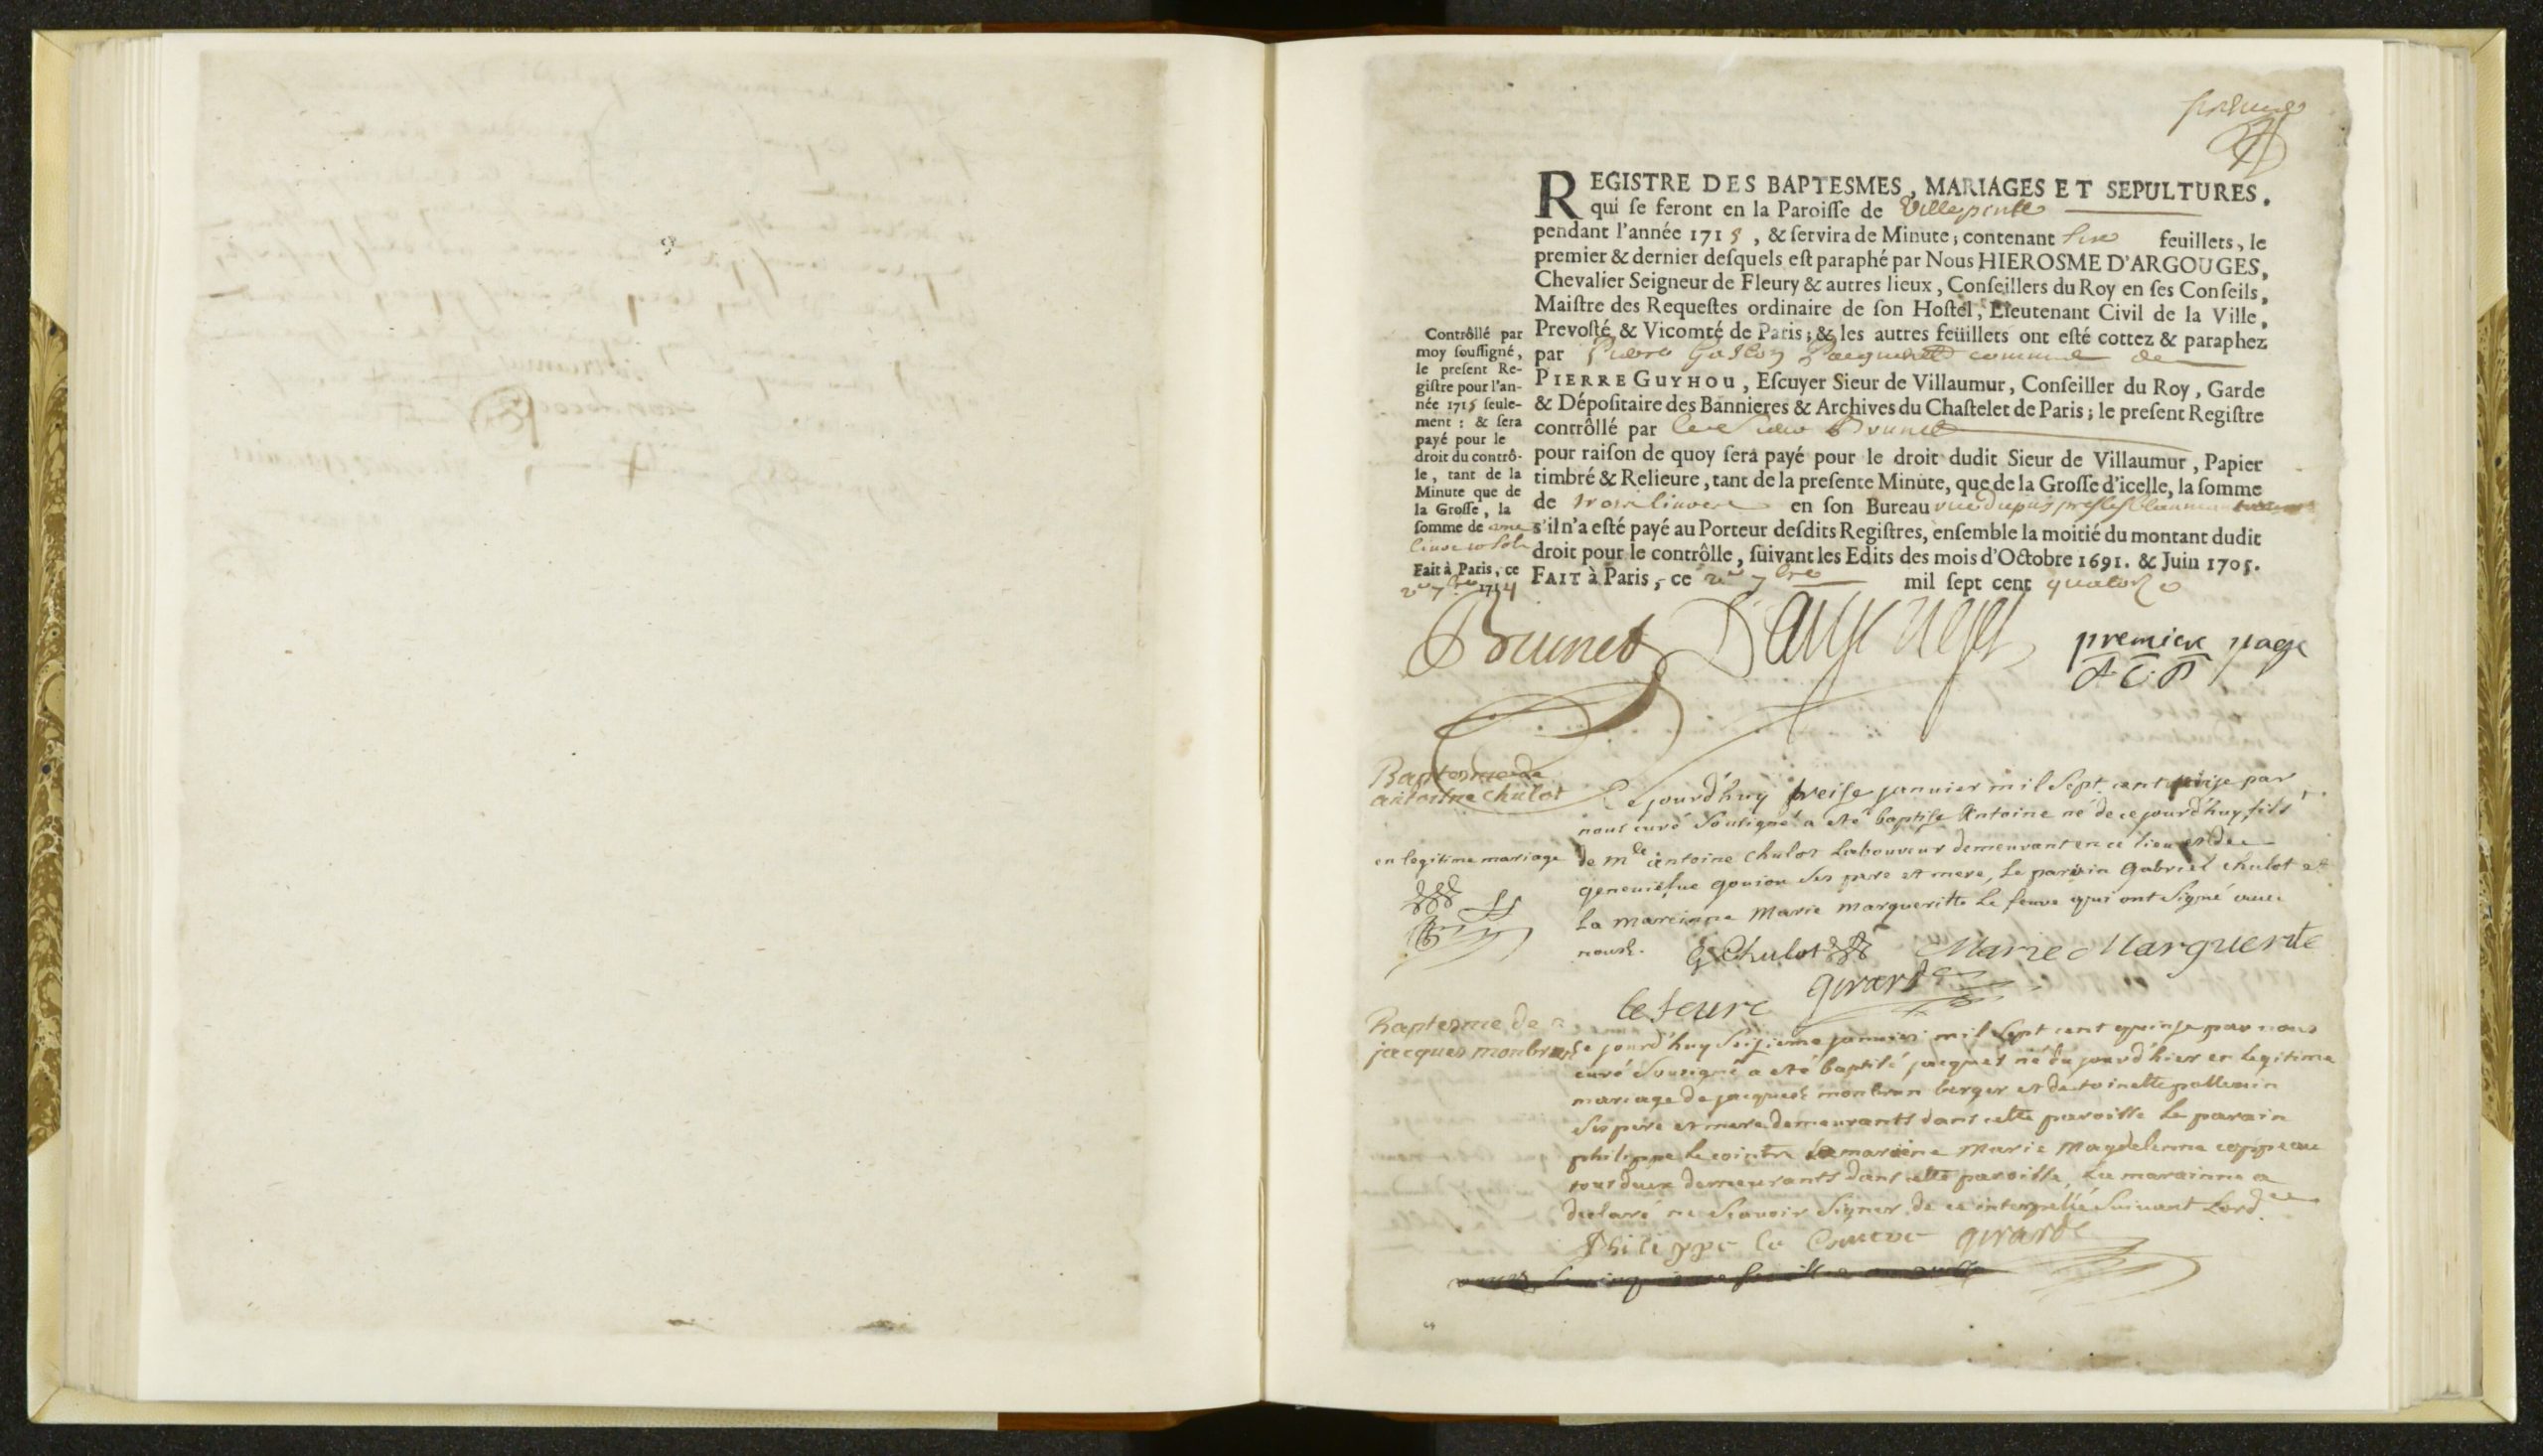 REGISTRE DES BAPTESMES, MARIAGES ET SEPULTURES.
qui ſe feront en la Paroiſſe de Villepinte
pendant l'année 1715, & ſervira de Minute; contenant Six feuillets, le
premier & dernier deſquels eſt paraphé par Nous HIEROSME D'ARGOUGES,
Chevalier Seigneur de Fleury & autres lieux, Conſeillers du Roy en ſes Conſeils,
Maiſtre des Requeſtes ordinaire de ſon Hoſtel, Lieutenant Civil de la Ville,
Prevoſté & Vicomté de Paris; & les autres feüillets ont eſté cottez & paraphez
par Pierre Gaston commis de
PIERRE GUYHOU, Eſcuyer Sieur de Villaumur, Conſeiller du Roy, Garde
& Dépoſitaire des Bannieres & Archives du Chaſtelet de Paris; le preſent Regiſtre
contrôllé par le Sieur Brunet
pour raiſon de quoy ſera payé pour le droit dudit Sieur de Villaumur, Papier
timbré & Relieure, tant de la preſente Minute, que de la Groſſe d'icelle, la ſomme
de trois livres en ſon Bureau
s'il n'a eſté payé au Porteur deſdits Regiſtres, enſemble la moitié du montant dudit
droit pour le contrôlle, ſuivant les Edits des mois d'Octobre 1691. & Juin 1705.
FAIT à Paris, ce 2e 7bre mil ſept cent quatorze
Contrôllé par
moy ſouſſigné,
le preſent Re-
giſtre pour l'an-
née 1715 ſeule-
ment: & ſera
payé pour le
droit du contrô-
le, tant de la
Minute que de
la Groſſe, la
ſomme de une
livre 10 sols
Fait à Paris, ce
2e 7bre 1714
Brunet D'argouges premiere page
Baptesme de
antoine chulot
Ce jourd'huy treise januier mil sept cent quinse par
nous curé sousigné a eté baptise Antoine né de ce jourd'huy fils
en legitime mariage
de mre antoine chulot Laboureur demeurant en ce lieu et de
geneuiefue gouion ses pere et mere, Le parain Gabriel chulot et
La mareinne Marie Margueritte Le feuure qui ont signé auec
nous.
G Chulot Marie Marguerite
lefeure girard
Baptesme de
jacques monbrun
Ce jourd'huy seizieme januier mil sept cent quinse par nous
curé sousigné a eté baptisé jacques né du jourd'hier en Legitime
mariage de jacques monbrun berger et de toinette
ses pere et mere demeurants dans cette paroisse Le parain
philippe Le cointre La marène Marie Magdelenne coppeau
tous deux demeurants dans cette paroisse, La marainne a
declaré ne scauoir signer de ce interpellé suiuant Lord.
Philippe le girard